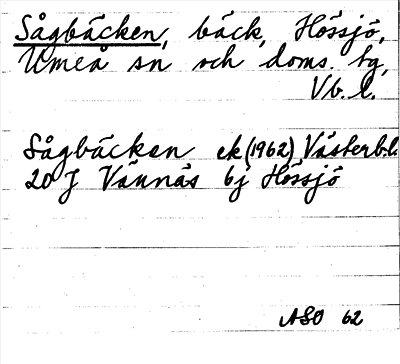 Sågbäcken, bäck, Hössjö,
Umeå sn och doms. tg,
Vb. l.
Sågbäcken ek (1962) Västerb.l.
20 J Vännäs bj Hössjö
ASO 62